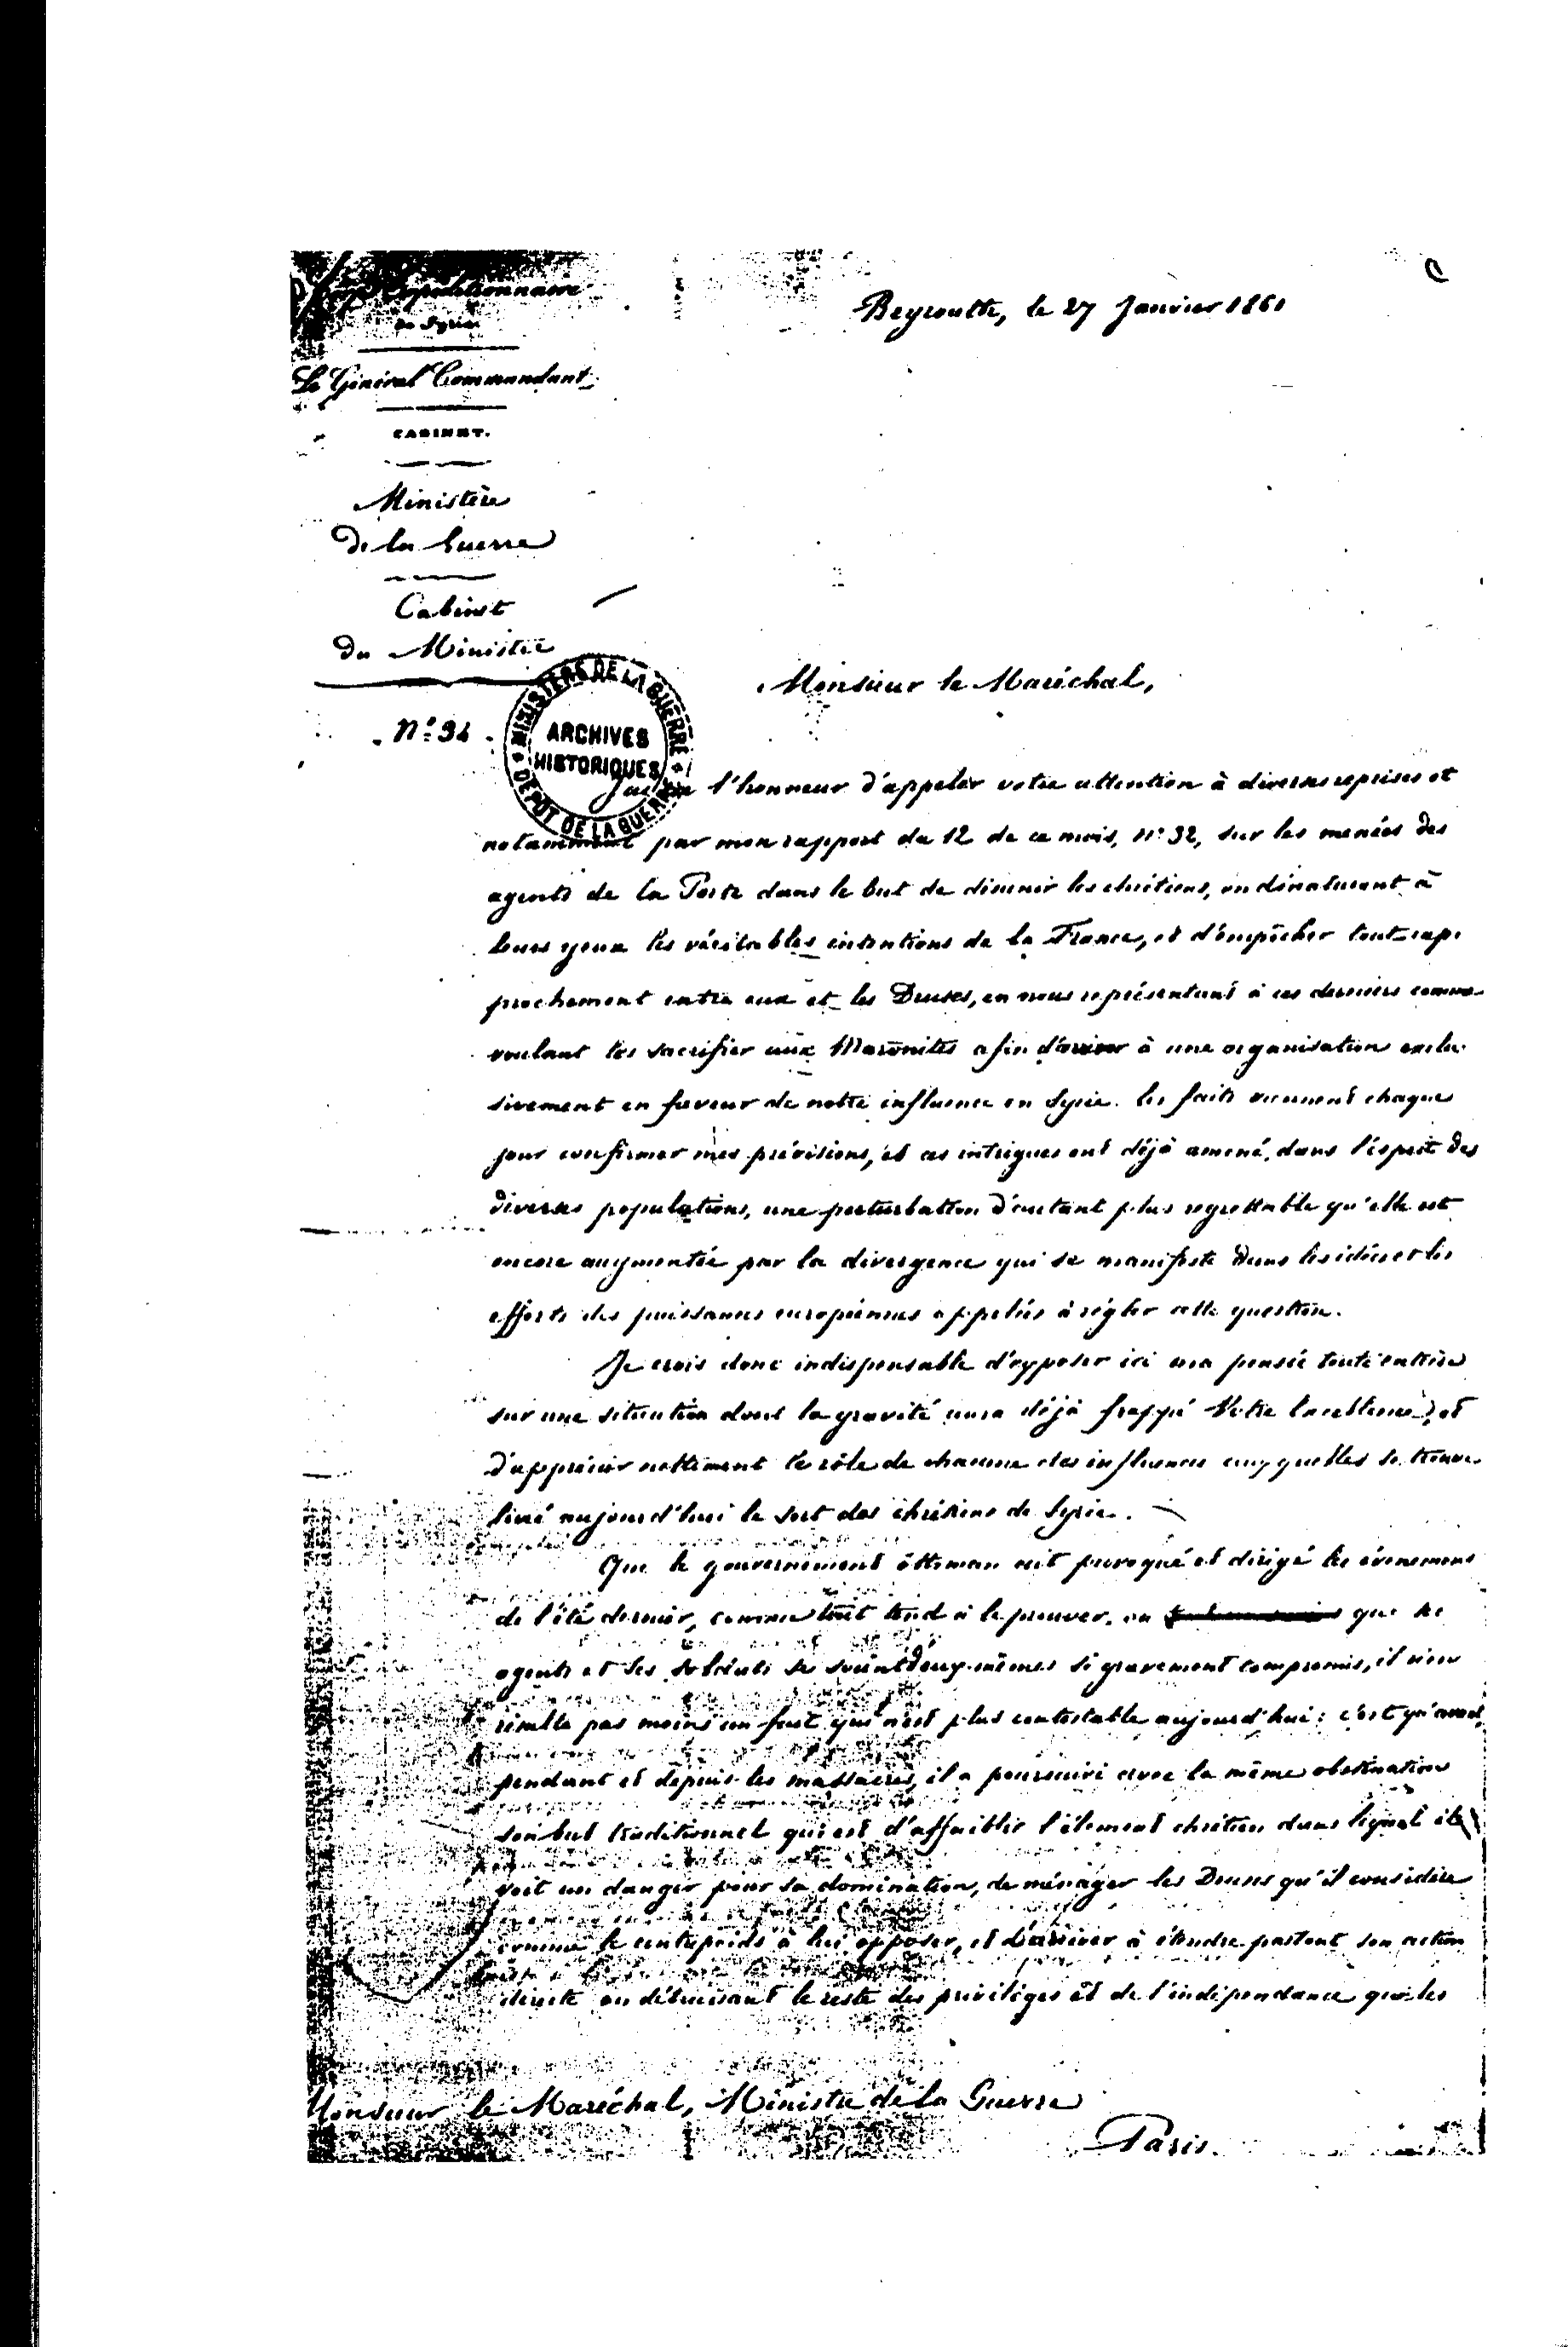 Corps Expéditionnaire
de Syrie
Le Général Commandant
CABINET.
Ministère
de la Guerre
Cabinet
du Ministre
N° 34
Beyrouth, le 27 Janvier 1861
MINISTÈRE DE LA GUERRE
ARCHIVES
HISTORIQUES
DÉPOT DE LA GUERRE
Monsieur le Maréchal,
J'ai eu l'honneur d'appeler votre attention à diverses reprises et
notamment par mon rapport du 12 de ce mois, n° 32, sur les menées des
agents de la Porte dans le but de désunir les chrétiens, en dénaturant à
leurs yeux les véritables intentions de la France, et d'empêcher tout rap-
prochement entre eux et les Druses, en nous représentant à ces derniers comme
voulant les sacrifier aux Maronites afin d'arriver à une organisation exclu-
sivement en faveur de notre influence en Syrie. Les faits viennent chaque
jour confirmer mes prévisions, et ces intrigues ont déjà amené, dans l'esprit des
diverses populations, une perturbation d'autant plus regrettable qu'elle est
encore augmentée par la divergence qui se manifeste dans les idées et les
efforts des puissances européennes appelées à régler cette question.
Je crois donc indispensable d'exposer ici ma pensée toute entière
sur une situation dont la gravité aura déjà frappé Votre Excellence, et
d'apprécier nettement le rôle de chacune des influences auxquelles se trouve
livré aujourd'hui le sort des chrétiens de Syrie.
Que le gouvernement ottoman ait provoqué et dirigé les événemens
de l'été dernier, comme tout tend à le prouver, ou que ses
agents et ses soldats se soient d'eux-mêmes si gravement compromis, il n'en
semble pas moins un fait qui n'est plus contestable aujourd'hui : c'est qu'avant,
pendant et depuis les massacres, il a poursuivi avec la même obstination
son but traditionnel qui est d'affaiblir l'élément chrétien dans lequel il
voit un danger pour sa domination, de ménager les Druses qu'il considère
comme le contrepoids à lui opposer, et d'arriver à étendre partout son action
directe en détruisant le reste des privilèges et de l'indépendance que les
Monsieur le Maréchal, Ministre de la Guerre
Paris.